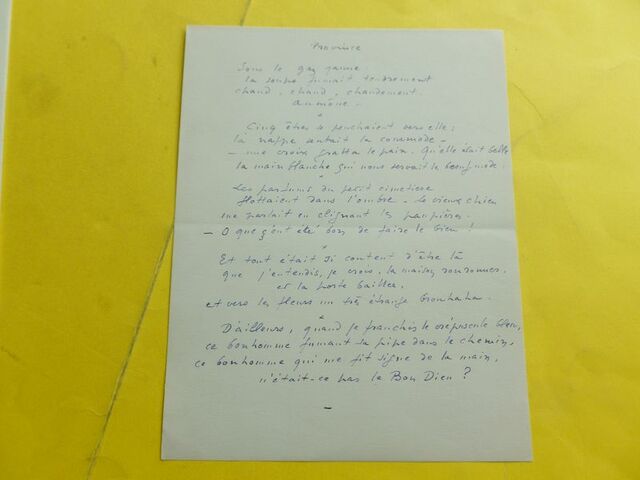 Province
Sous le gaz jaune
la soupe fumait tendrement
chaud, chaud, chaudement.
aumône.
*
Cinq êtres se penchaient vers elle ;
la nappe sentait la commode –
– une croix gratta le pain. Qu'elle était belle
la main blanche qui nous servait le bœuf mode
*
Les parfums du petit cimetière
flottaient dans l'ombre – le vieux chien
me parlait en clignant les paupières.
– O que ç'eut été bon de faire le bien !
*
Et tout était si content d'être là
que j'entendis, je crois, la maison ronronner,
et la porte bailler,
et vers les fleurs un très étrange brouhaha.
*
D'ailleurs, quand je franchis le crépuscule bleu,
ce bonhomme fumant sa pipe dans le chemin,
ce bonhomme qui me fit signe de la main,
n'était-ce pas le Bon Dieu ?
–